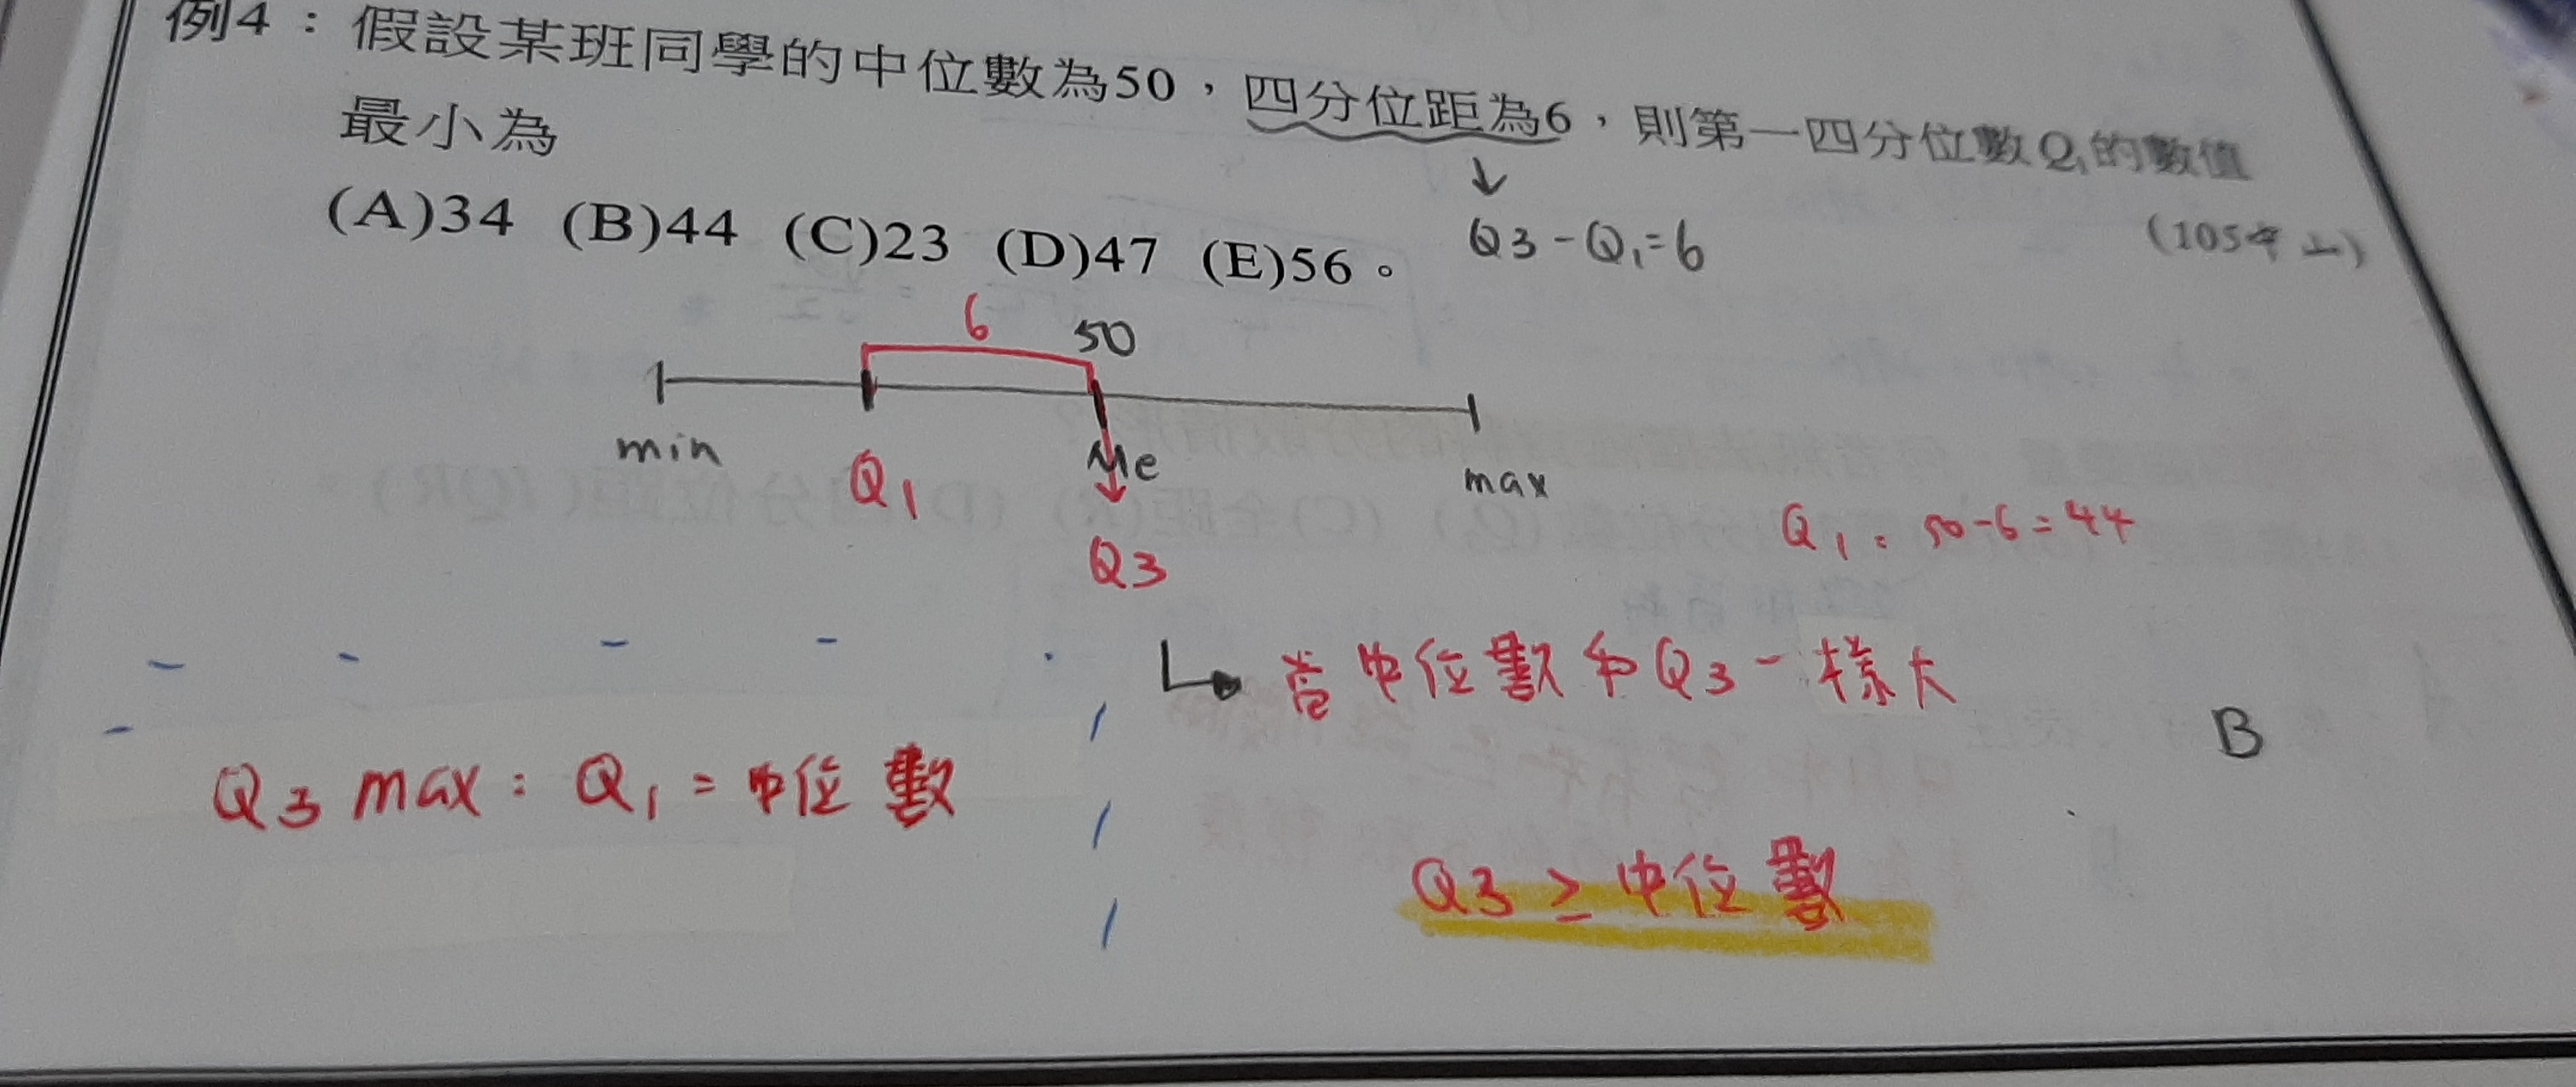 例4：假設某班同學的中位數為50，四分位距為6，則第一四分位數Q₁的數值
最小為
(A)34 (B)44 (C)23 (D)47 (E)56。
(105年上)
↓
Q3-Q₁=6
6 50
min Q₁ Me max
↓
Q3
Q₁ = 50-6=44
當中位數和Q3一樣大
B
Q3 max：Q₁=中位數
Q3 ≥ 中位數